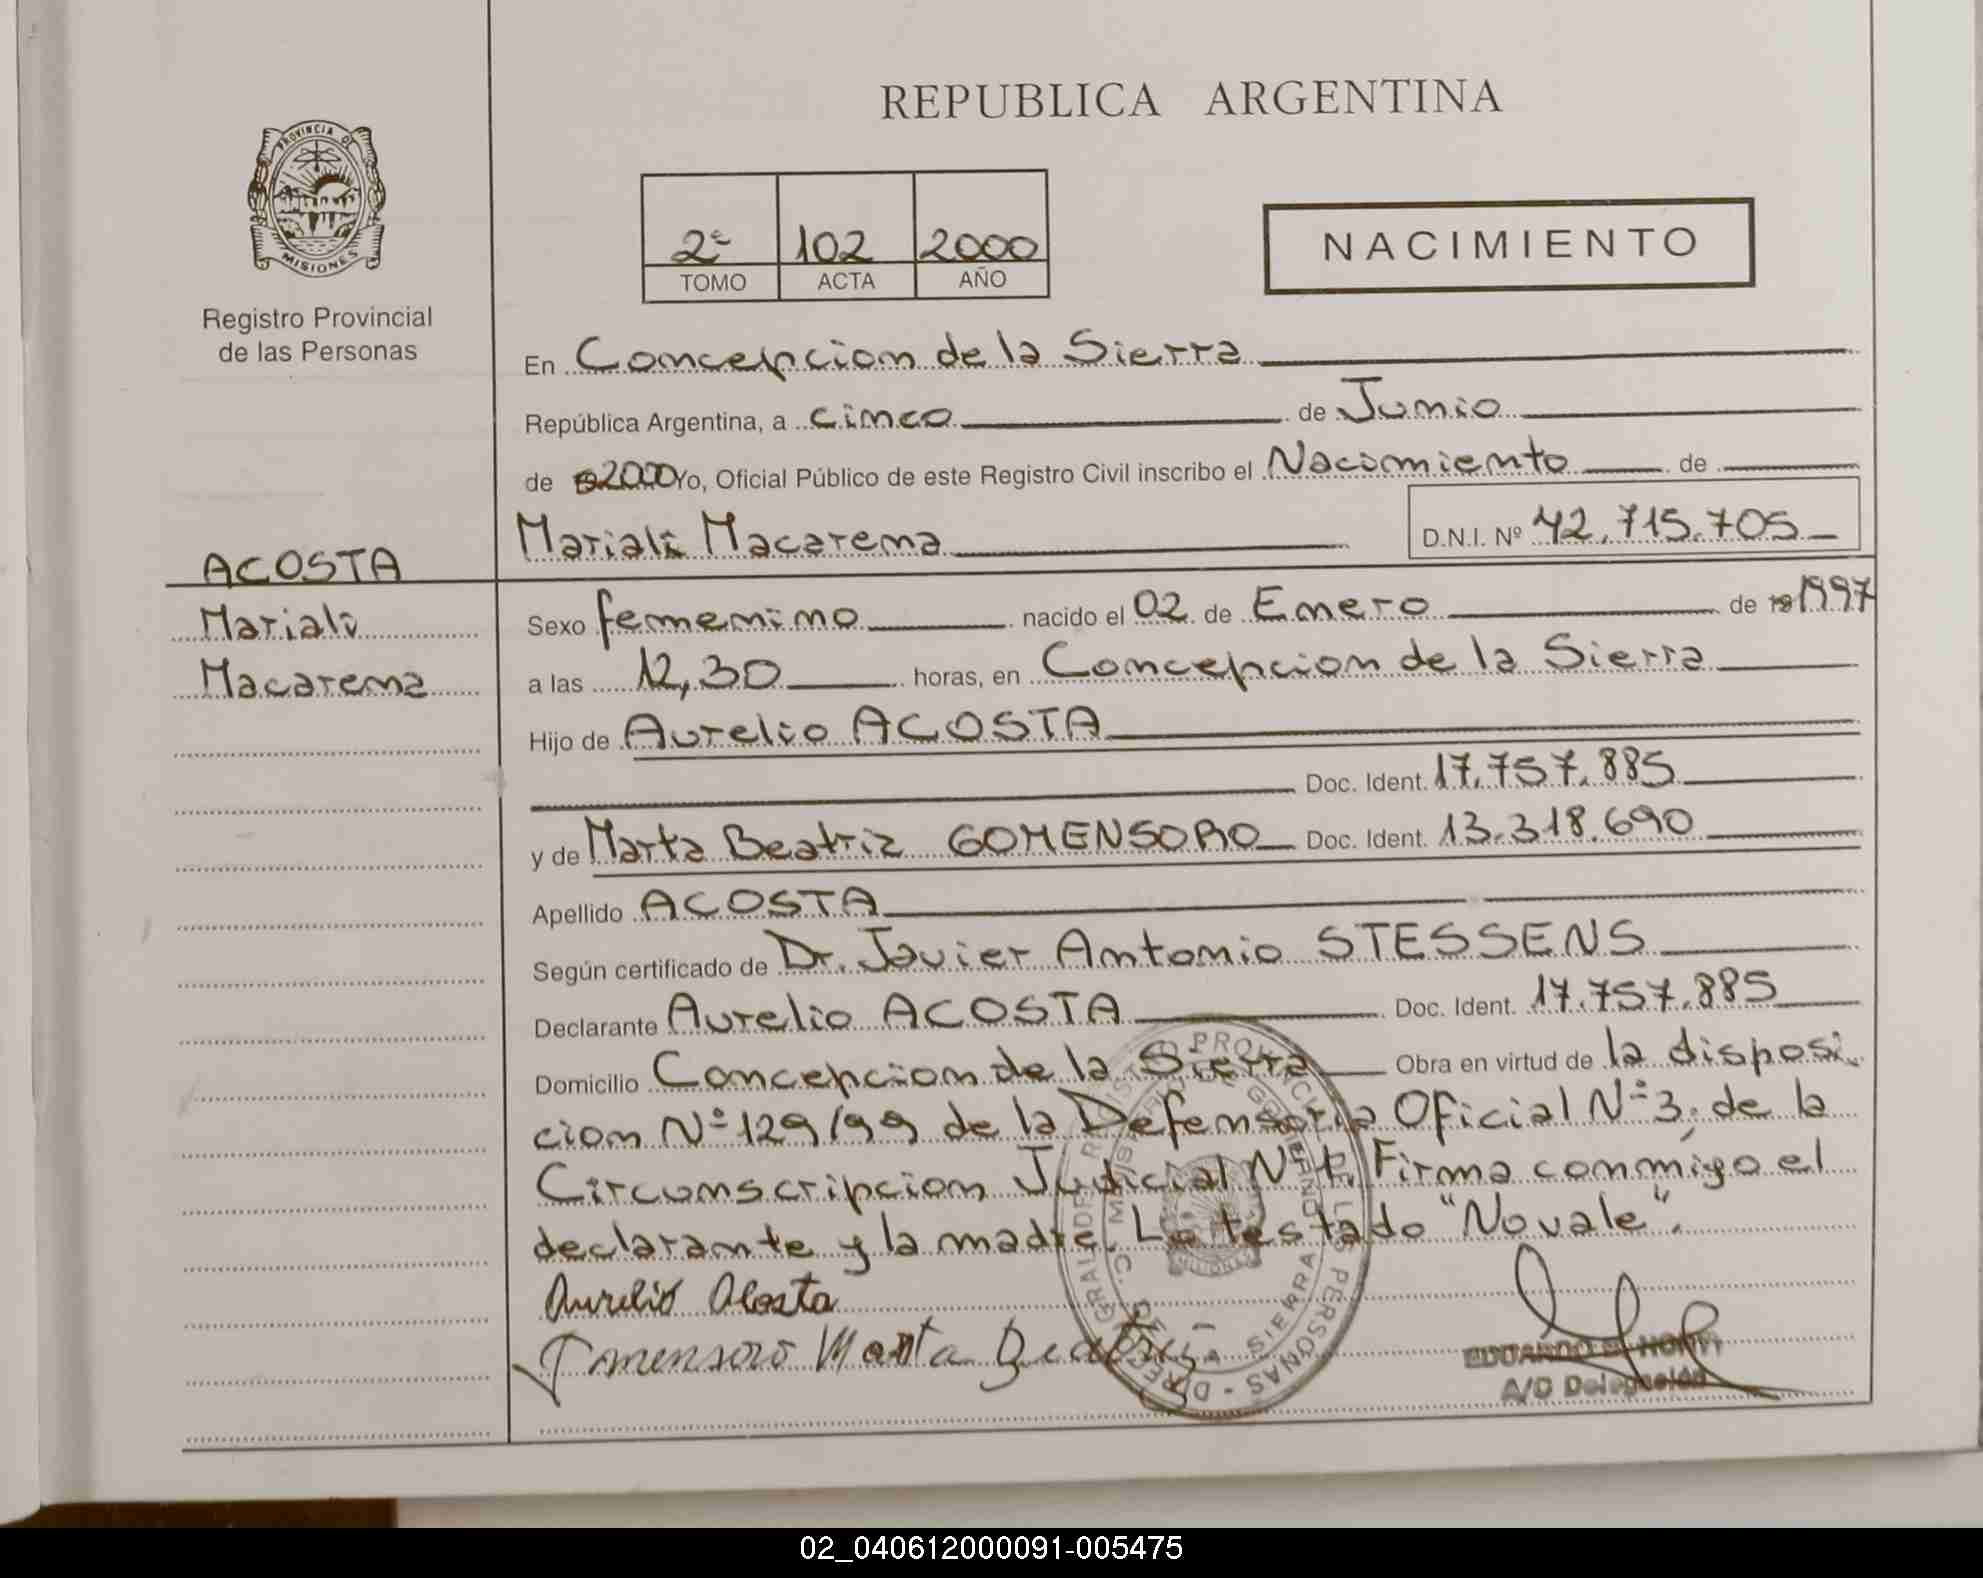 REPUBLICA ARGENTINA
PROVINCIA DE
MISIONES
Registro Provincial
de las Personas
2º 102 2000
TOMO ACTA AÑO
NACIMIENTO
En Concepcion de la Sierra
República Argentina, a cinco de Junio
de 2000 Yo, Oficial Público de este Registro Civil inscribo el Nacimiento de
Mariali Macarena D.N.I. Nº 42.715.705
ACOSTA
Mariali
Macarena
Sexo femenino nacido el 02 de Enero de 19 1997
a las 12,30 horas, en Concepcion de la Sierra
Hijo de Aurelio ACOSTA
Doc. Ident. 17.757.885
y de Marta Beatriz GOMENSORO Doc. Ident. 13.318.690
Apellido ACOSTA
Según certificado de Dr. Javier Antonio STESSENS
Declarante Aurelio ACOSTA Doc. Ident. 17.757.885
Domicilio Concepcion de la Sierra Obra en virtud de la disposi
cion Nº 129/99 de la Defensoria Oficial Nº 3, de la
Circunscripcion Judicial Nº 1. Firma conmigo el
declarante y la madre. Lo testado "No vale".
Aurelio Acosta
Gomensoro Marta Beatriz
EDUARDO
A/C Delegación
02_040612000091-005475